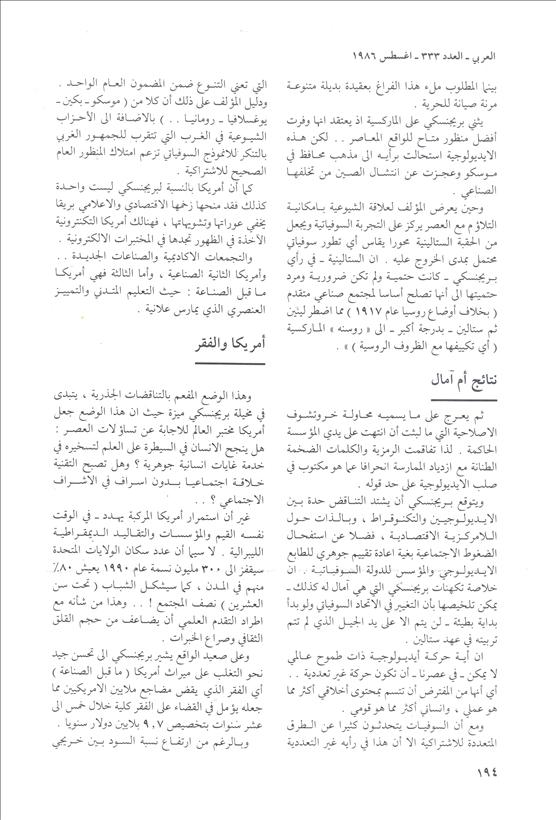 العربي ـ العدد ٣٣٣ ـ اغسطس ١٩٨٦
بينما المطلوب ملء هذا الفراغ بعقيدة بديلة متنوعة
مرنة صيانة للحرية .
يثني بريجنسكي على الماركسية اذ يعتقد انها وفرت
أفضل منظور متاح للواقع المعاصر .. لكن هذه
الايديولوجية استحالت برأيه الى مذهب محافظ في
موسكو وعجزت عن انتشال الصين من تخلفها
الصناعي .
وحين يعرض المؤلف لعلاقة الشيوعية بامكانية
التلاؤم مع العصر يركز على التجربة السوفياتية ويجعل
من الحقبة الستالينية محورا يقاس أي تطور سوفياتي
محتمل بمدى الخروج عليه . ان الستالينية ـ في رأي
بريجنسكي ـ كانت حتمية ولم تكن ضرورية ومرد
حتميتها الى أنها تصلح أساسا لمجتمع صناعي متقدم
( بخلاف أوضاع روسيا عام ١٩١٧ ) مما اضطر لينين
ثم ستالين ـ بدرجة أكبر ـ الى « روسنه » الماركسية
( أي تكييفها مع الظروف الروسية ) » .
نتائج أم آمال
ثم يعرج على ما يسميه محاولة خروتشوف
الاصلاحية التي ما لبثت أن انتهت على يدي المؤسسة
الحاكمة . لذا تفاقمت الرمزية والكلمات الضخمة
الطنانة مع ازدياد الممارسة انحرافا عما هو مكتوب في
صلب الايديولوجية على حد قوله .
ويتوقع بريجنسكي أن يشتد التناقض حدة بين
الايديولوجيين والتكنوقراط ، وبالذات حول
اللامركزية الاقتصادية ، فضلا عن استفحال
الضغوط الاجتماعية بغية اعادة تقييم جوهري للطابع
الايديولوجي والمؤسس للدولة السوفياتية . ان
خلاصة تكهنات بريجنسكي التي هي آمال له كذلك ـ
يمكن تلخيصها بأن التغيير في الاتحاد السوفياتي ولو بدأ
بداية بطيئة ـ لن يتم الا على يد الجيل الذي لم تتم
تربيته في عهد ستالين .
ان أية حركة أيديولوجية ذات طموح عالمي
لا يمكن ـ في عصرنا ـ أن تكون حركة غير تعددية ..
أي أنها من المفترض أن تتسم بمحتوى أخلاقي أكثر مما
هو عملي ، وانساني أكثر مما هو قومي .
ومع أن السوفيات يتحدثون كثيرا عن الطرق
المتعددة للاشتراكية الا أن هذا في رأيه غير التعددية
التي تعني التنوع ضمن المضمون العام الواحد .
ودليل المؤلف على ذلك أن كلا من ( موسكو ـ بكين ـ
يوغسلافيا ـ رومانيا .. ) بالاضافة الى الأحزاب
الشيوعية في الغرب التي تتقرب للجمهور الغربي
بالتنكر للانموذج السوفياتي تزعم امتلاك المنظور العام
الصحيح للاشتراكية .
كما أن أمريكا بالنسبة لبريجنسكي ليست واحدة
كذلك فقد منحها زخمها الاقتصادي والاعلامي بريقا
يخفي عوراتها وتشويهاتها ، فهنالك أمريكا التكنترونية
الآخذة في الظهور نجدها في المختبرات الالكترونية .
والتجمعات الاكاديمية والصناعات الجديدة ..
وأمريكا الثانية الصناعية ، وأما الثالثة فهي أمريكا
ما قبل الصناعة : حيث التعليم المتدني والتمييز
العنصري الذي يمارس علانية .
أمريكا والفقر
وهذا الوضع المفعم بالتناقضات الجذرية ، يتبدى
في مخيلة بريجنسكي ميزة حيث ان هذا الوضع جعل
أمريكا مختبر العالم للاجابة عن تساؤلات العصر :
هل ينجح الانسان في السيطرة على العلم لتسخيره في
خدمة غايات انسانية جوهرية ؟ وهل تصبح التقنية
خلاقة اجتماعيا بدون اسراف في الاشراف
الاجتماعي ؟ ..
غير أن استمرار أمريكا المركبة يهدد ـ في الوقت
نفسه القيم والمؤسسات والتقاليد الديمقراطية
الليبرالية . لا سيما أن عدد سكان الولايات المتحدة
سيقفز الى ٣٠٠ مليون نسمة عام ١٩٩٠ يعيش ٨٠٪
منهم في المدن ، كما سيشكل الشباب ( تحت سن
العشرين ) نصف المجتمع ! .. وهذا من شأنه مع
اطراد التقدم العلمي أن يضاعف من حجم القلق
الثقافي وصراع الخبرات .
وعلى صعيد الواقع يشير بريجنسكي الى تحسن جيد
نحو التغلب على ميراث أمريكا ( ما قبل الصناعة )
أي الفقر الذي يقض مضاجع ملايين الامريكيين مما
جعله يؤمل في القضاء على الفقر كلية خلال خمس الى
عشر سنوات بتخصيص ٩,٧ بلايين دولار سنويا .
وبالرغم من ارتفاع نسبة السود بين خريجي
١٩٤